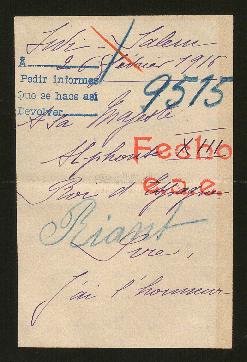 26 février 1916
A
Pedir informes
Que se haga así
Devolver
9515
A Sa Majesté
Alphonse XIII
Fecho
Roi d'Espagne
e.a.e.
Riant
Sire,
J'ai l'honneur